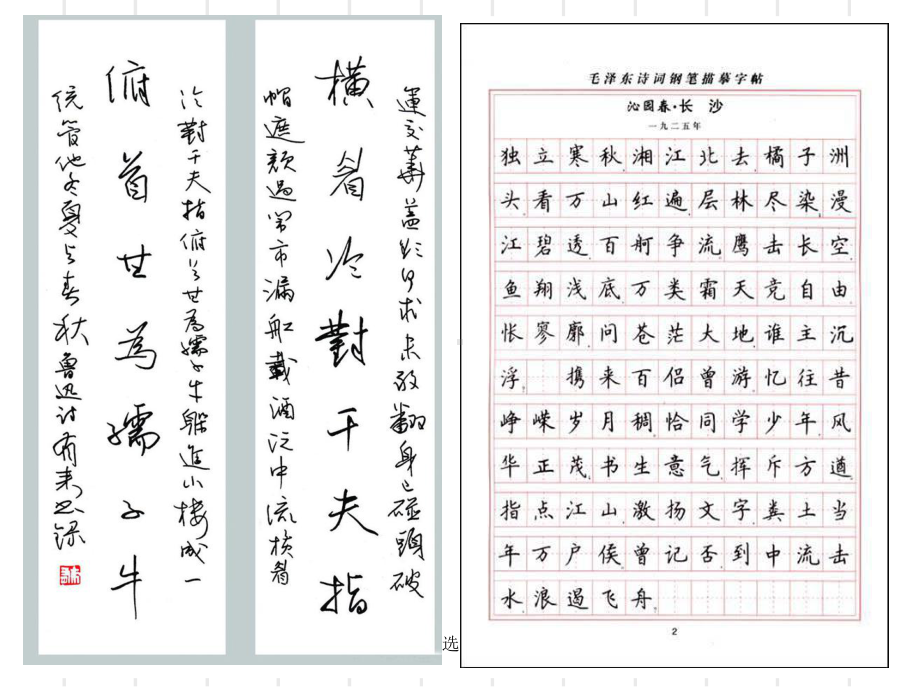 運交華蓋欲何求未敢翻身已碰頭破
橫眉冷對千夫指
帽遮顏過鬧市漏船載酒泛中流橫眉
冷對千夫指俯首甘為孺子牛躲進小樓成一
俯首甘為孺子牛
統管他冬夏与春秋 魯迅诗
选
毛泽东诗词钢笔描摹字帖
沁园春·长 沙
一九二五年
独立寒秋湘江北去橘子洲
头看万山红遍层林尽染漫
江碧透百舸争流鹰击长空
鱼翔浅底万类霜天竞自由
怅寥廓问苍茫大地谁主沉
浮 携来百侣曾游忆往昔
峥嵘岁月稠恰同学少年风
华正茂书生意气挥斥方遒
指点江山激扬文字粪土当
年万户侯曾记否到中流击
水浪遏飞舟
2